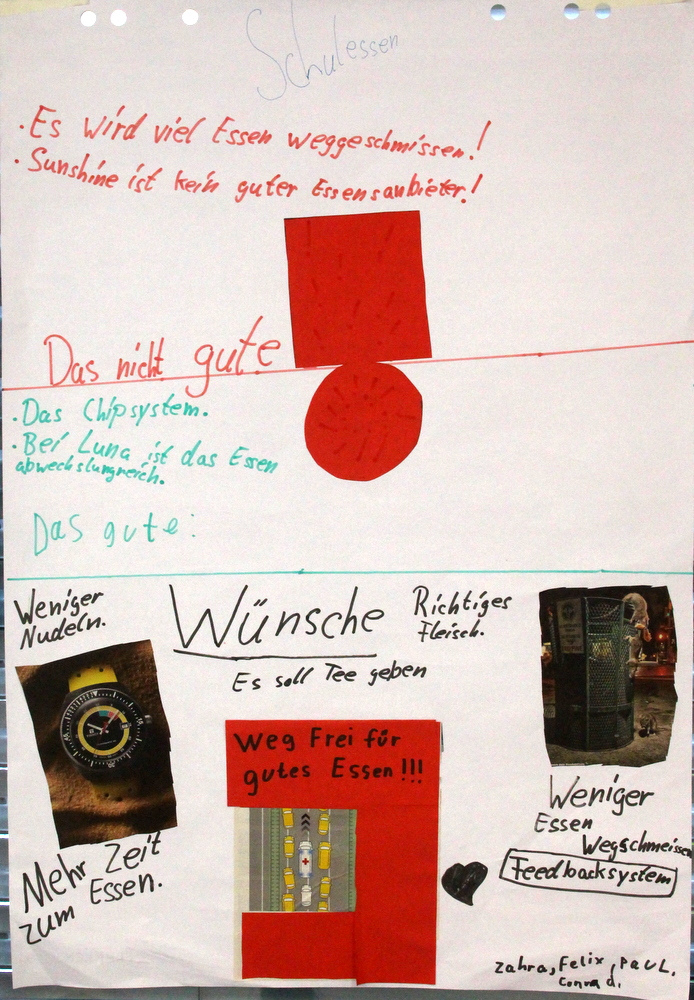 Schulessen
· Es wird viel Essen weggeschmissen!
· Sunshine ist kein guter Essensanbieter!
Das nicht gute
· Das Chipsystem.
· Bei Luna ist das Essen
abwechslungreich.
Das gute:
Weniger
Nudeln.
Wünsche
Richtiges
Fleisch.
Es soll Tee geben
Weg Frei für
gutes Essen!!!
Mehr Zeit
zum Essen.
Weniger
Essen
Wegschmeissen
Feedbacksystem
Zahra, Felix, PAUL,
Conrad.